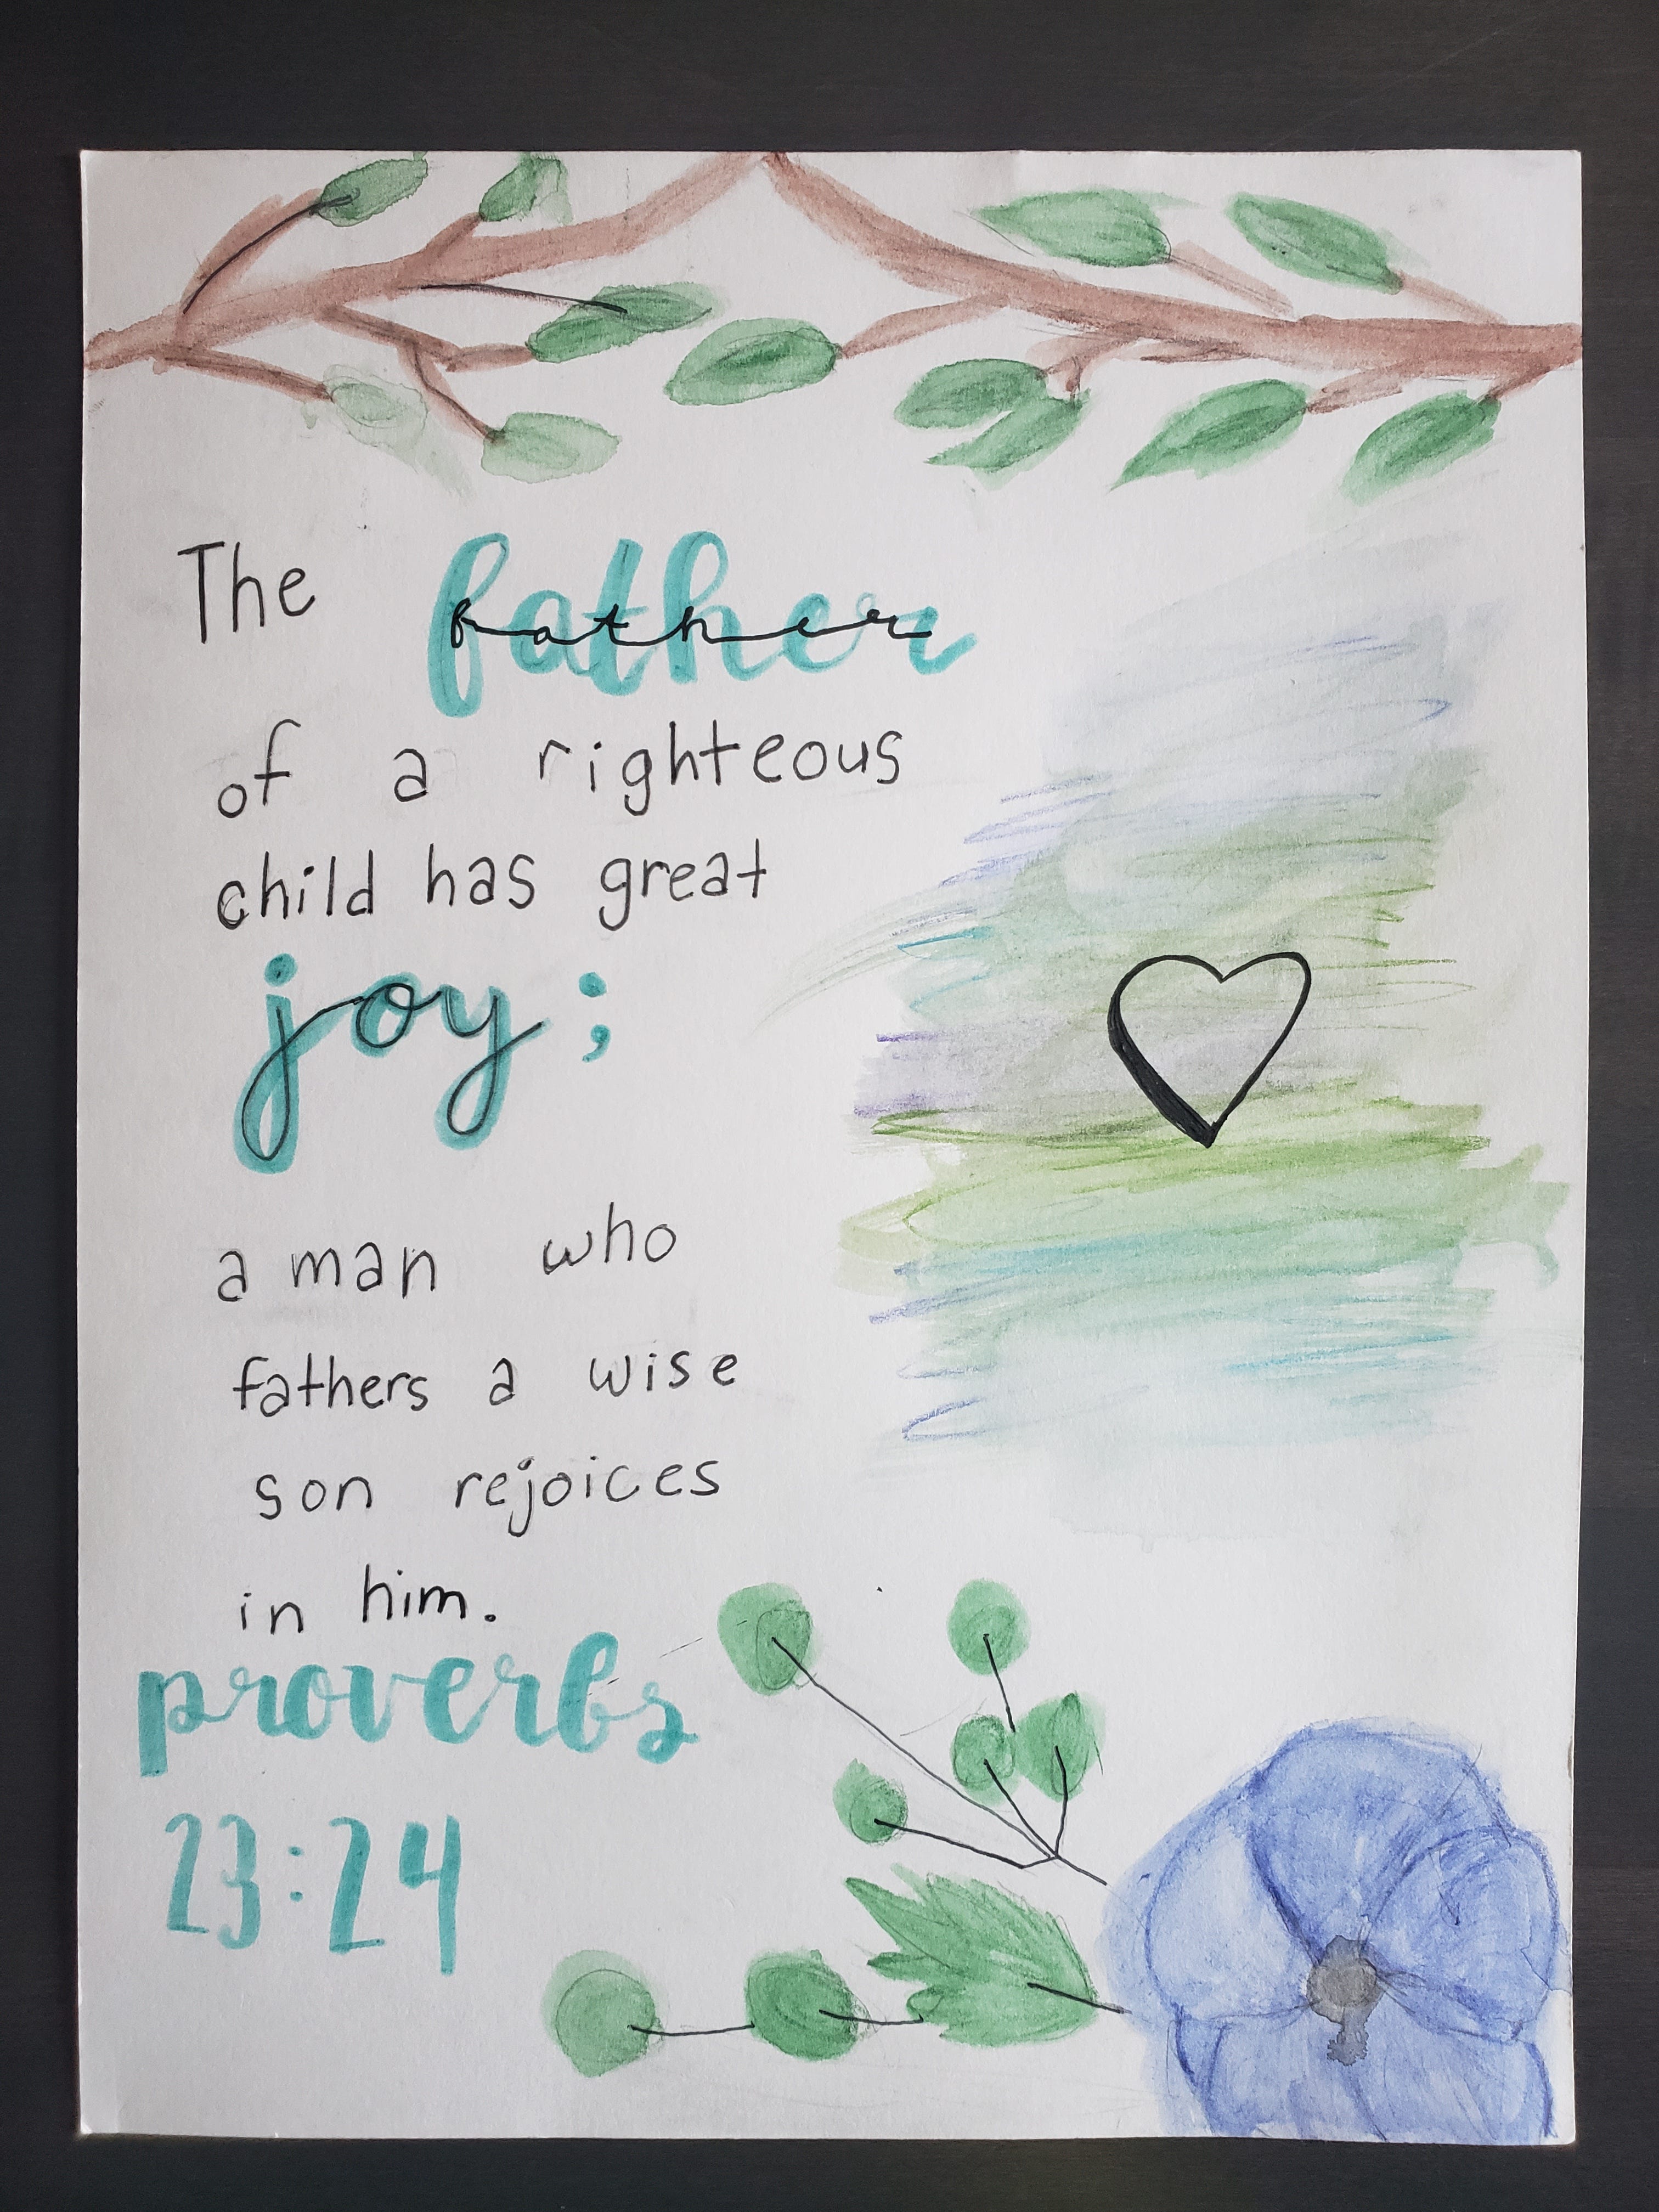 The father
of a righteous
child has great
joy;
a man who
fathers a wise
son rejoices
in him.
proverbs
23:24